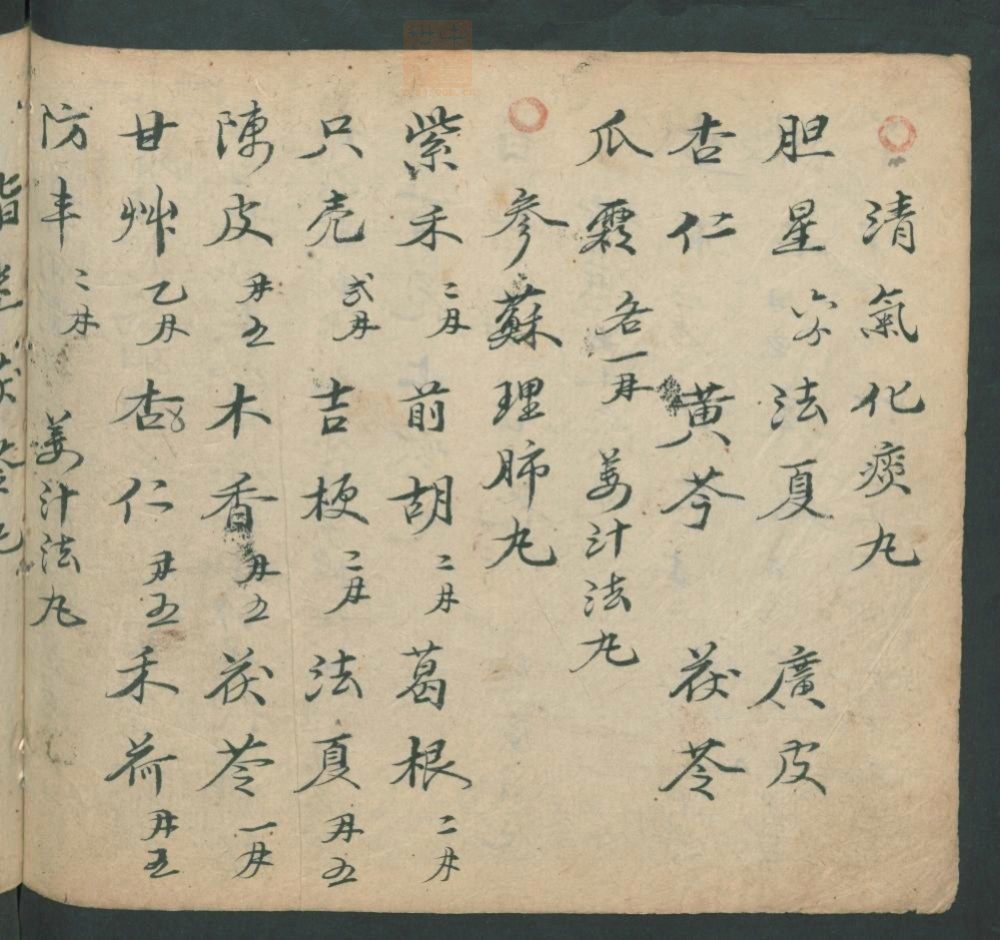 清氣化痰丸
胆星 法夏 廣皮
杏仁 黄芩 茯苓
瓜霜 各一両 姜汁法丸
參蘇理肺丸
紫禾 二両 前胡 二両 葛根 二両
只壳 弍両 吉梗 二両 法夏 両五
陳皮 両五 木香 両五 茯苓 一両
甘艸 乙両 杏仁 両五 禾荷 両五
防丰 二両 姜汁法丸